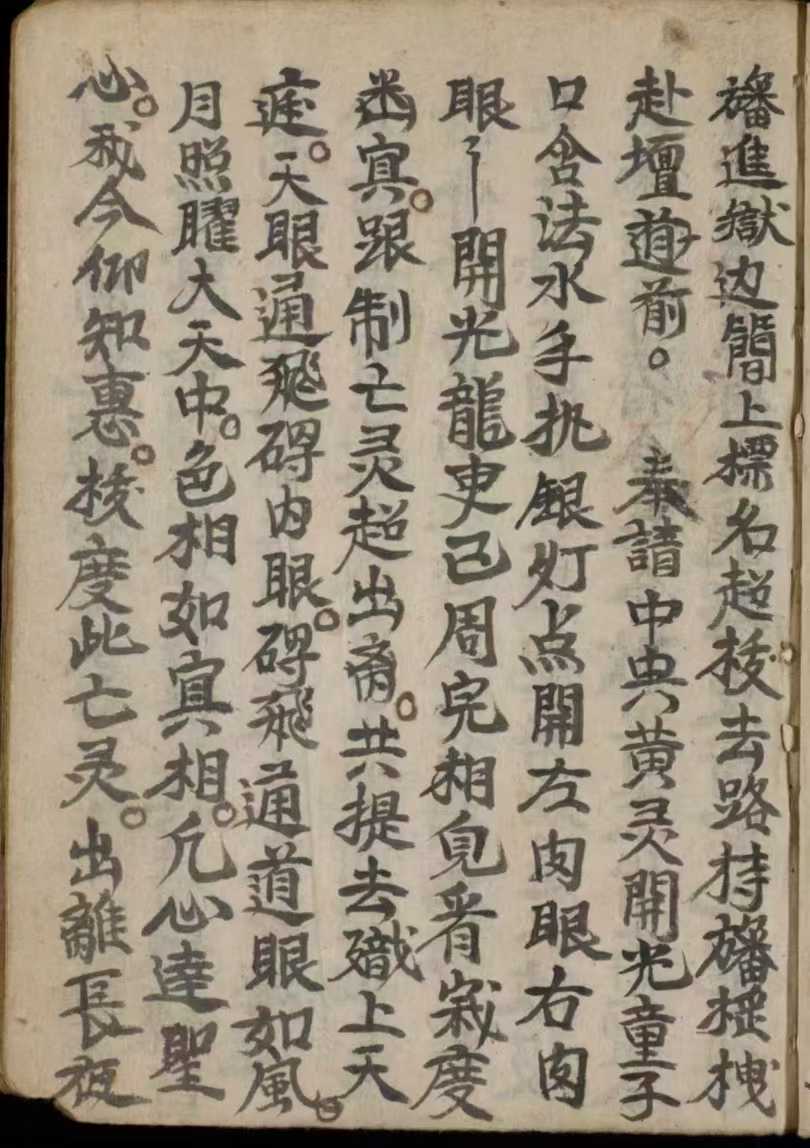 旛進獄边簡上標名超拔去路持旛摇拽
赴壇道前。奉請中央黄灵開光童子
口含法水手执銀灯点開左肉眼右肉
眼㇋丨開光龍吏己周完相皃看寂度
幽冥。跟制亡灵超出斋。共提去職上天
庭。天眼通飛碍肉眼。碍飛通道眼如風。
月照曜大天中。色相如真相。凢心達聖
心。我今仰知惠。拔度此亡灵。出離長夜